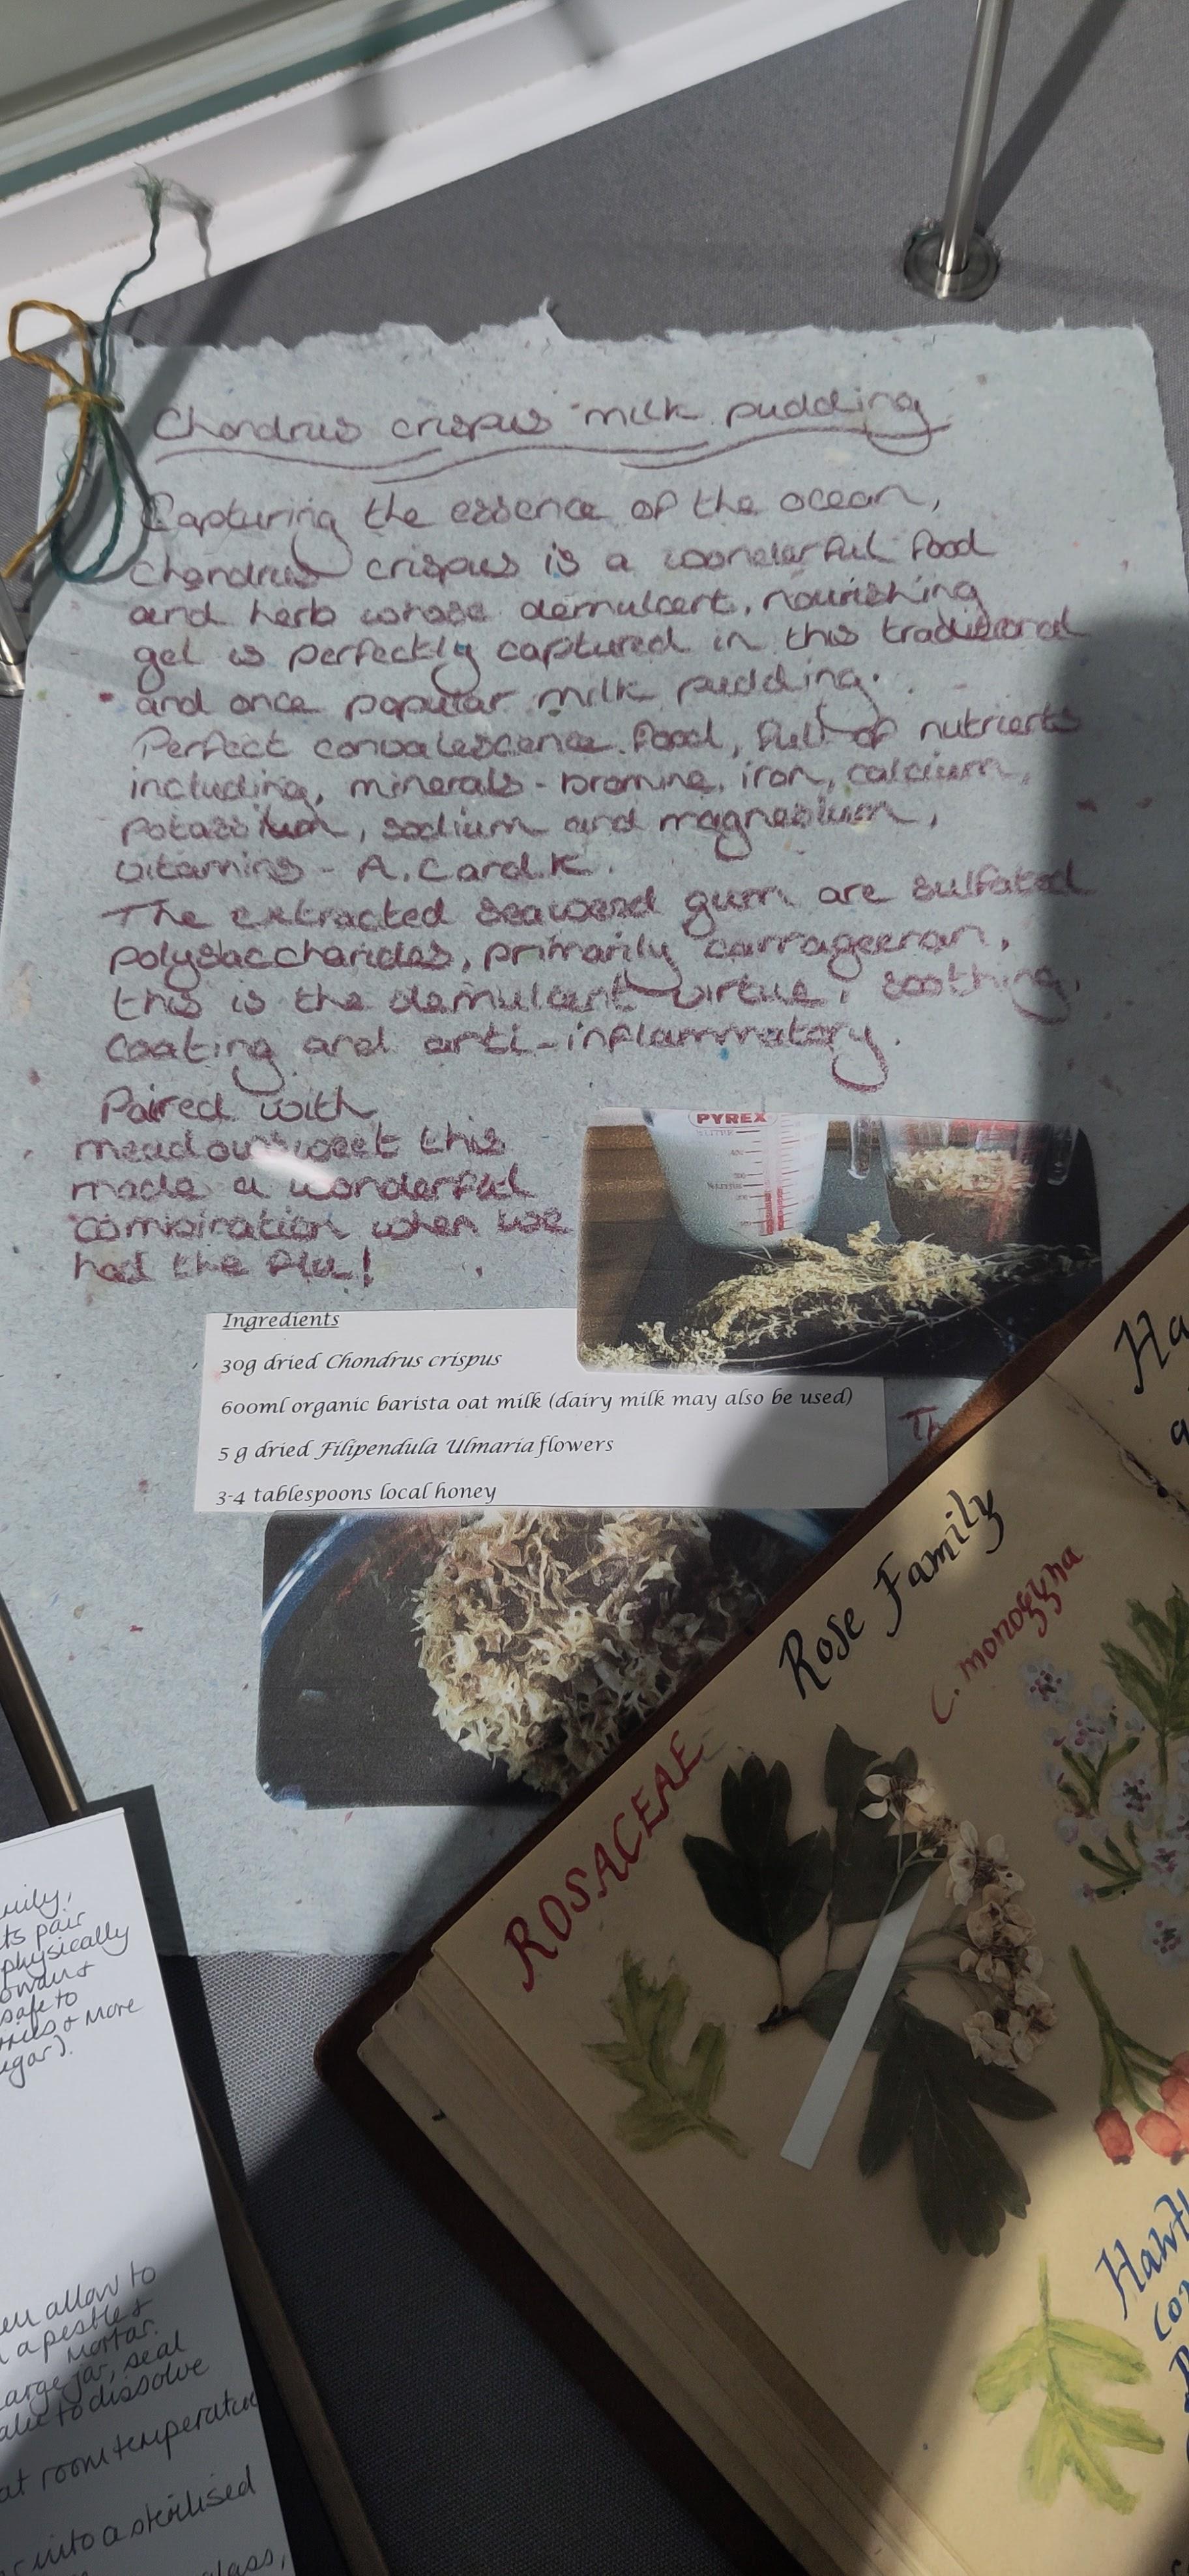 Chondrus crispus milk pudding
Capturing the essence of the ocean,
Chondrus crispus is a wonderful food
and herb whose demulcent, nourishing
gel is perfectly captured in this traditional
and once popular milk pudding.
Perfect convalescence food, full of nutrients
including, minerals - bromine, iron, calcium,
potassium, sodium and magnesium,
vitamins - A, C and K.
The extracted seaweed gum are sulfated
polysaccharides, primarily carrageenan,
this is the demulcent virtue, soothing,
coating and anti-inflammatory.
Paired with
meadowsweet this
made a wonderful
combination when we
had the flu!
PYREX
Ingredients
30g dried Chondrus crispus
600ml organic barista oat milk (dairy milk may also be used)
5 g dried Filipendula Ulmaria flowers
3-4 tablespoons local honey
Th
Ha
a
Rose Family
C. monogyna
ROSACEAE
Hawt
co
mily,
ts pair
physically
powder +
safe to
+ more
ugar).
allow to
a pestle +
mortar.
large jar, seal
to dissolve
at room temperature
into a sterilised
glass,